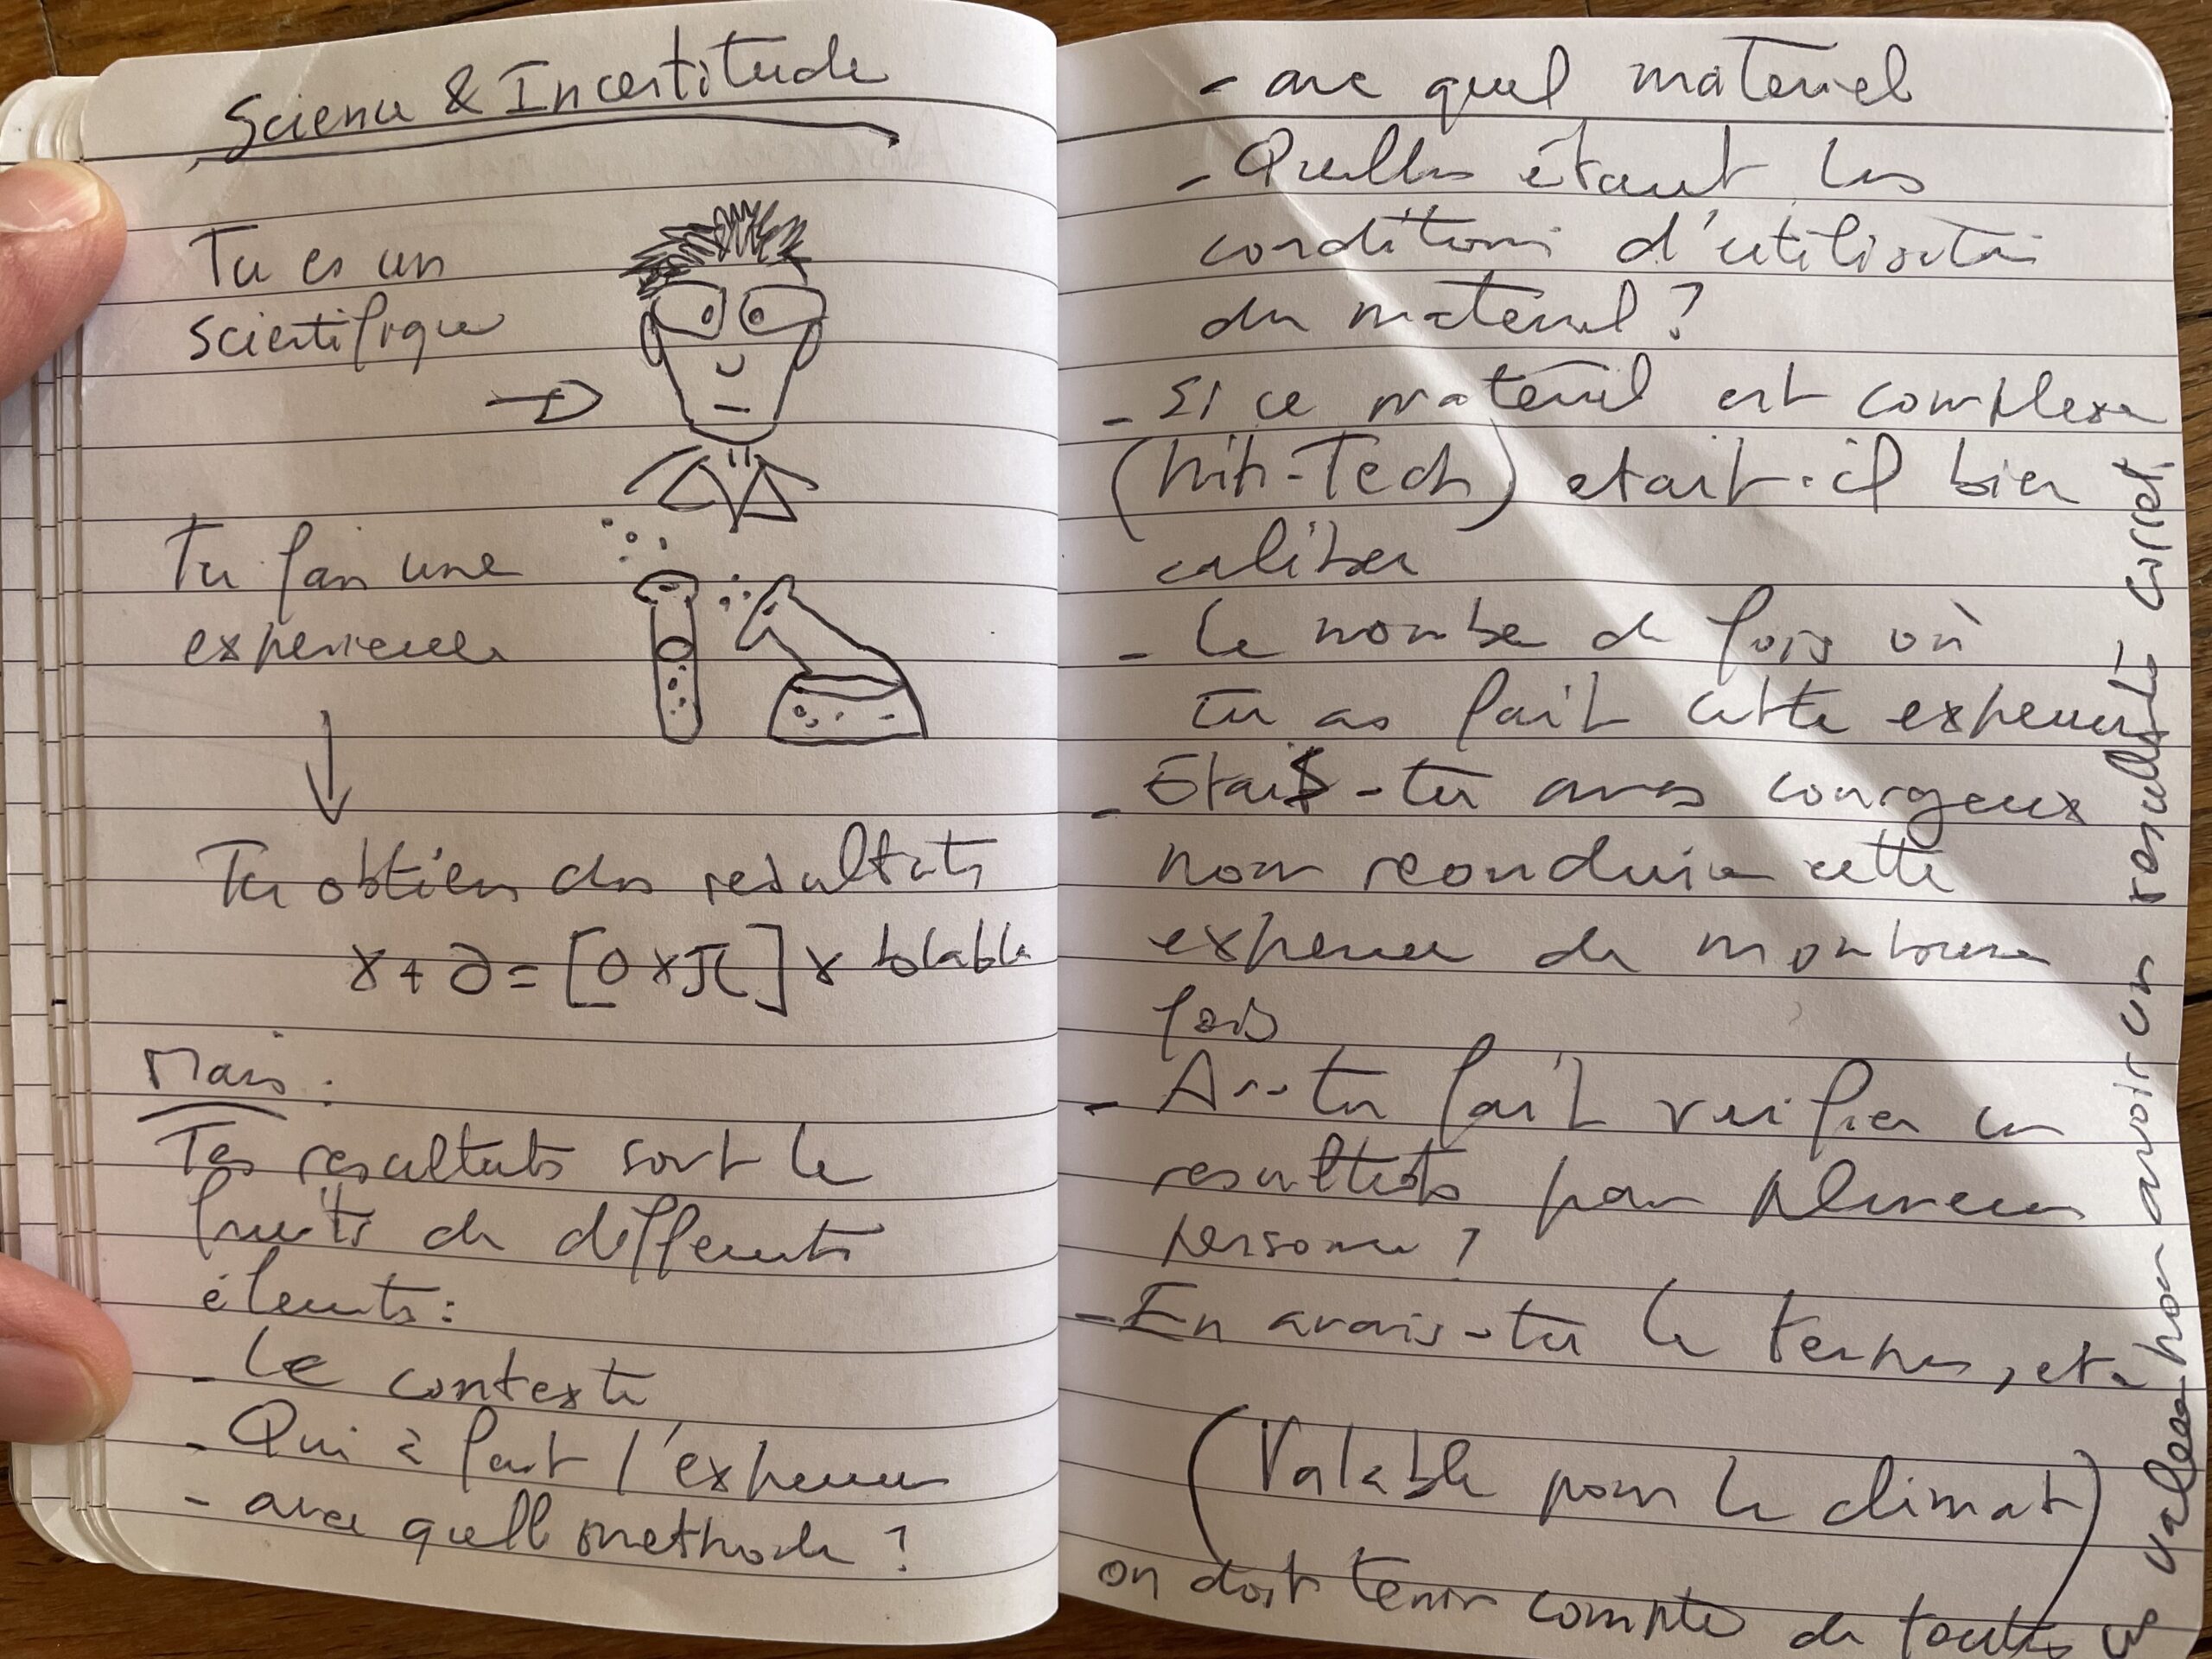 Science & Incertitude
Tu es un
scientifique
Tu fais une
experience
Tu obtiens des resultats
x + ∂ = [0 x π] x blabla
Mais :
Tes resultats sont le
fruits de differents
élements :
- Le contexte
- Qui à fait l'experience
- avec quelle methode ?
- avec quel materiel
- Quelles étaient les
conditions d'utilisation
du materiel ?
- Si ce materiel est complexe
(hith-Tech) etait-il bien
calibrer
- Le nombre de fois où
tu as fait cette experience
- Etais-tu assez courageux
pour reconduire cette
experience de nombreuses
fois
- As-tu fait verifier ces
resultats par plusieurs
personnes ?
- En avais-tu le temps, etc
(Valable pour le climat)
on doit tenir compte de toutes ces
valeurs pour avoir un resultat correct